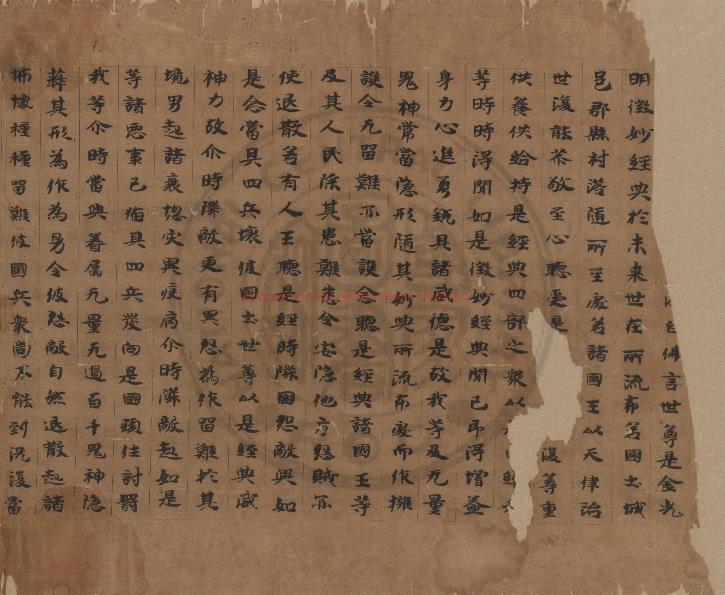 佛言世尊是金光
明微妙經典於未來世在所流布若國土城
邑郡縣村落隨所至處若諸國王以天律治
世復能恭敬至心聽受是 復尊重
供養供給持是經典四部之衆以
等時時得聞如是微妙經典聞已即得增益
身力心進勇銳具諸威德是故我等及无量
鬼神常當隱形隨其妙典所流布處而作擁
護令无留難亦當護念聽是經典諸國王等
及其人民除其患難悉令安隱他方怨賊亦
使退散若有人王聽是經時隣國怨敵興如
是念當具四兵壞彼國土世尊以是經典威
神力故尒時隣敵更有異怨為作留難於其
境界起諸衰惱灾異疫病尒時隣敵起如是
等諸惡事已俻具四兵發向是國規往討罸
我等尒時當與眷属无量无邊百千鬼神隱
蔽其形為作為易令彼怨敵自然退散起諸
怖懅種種留難彼國兵衆尚不能到況復當